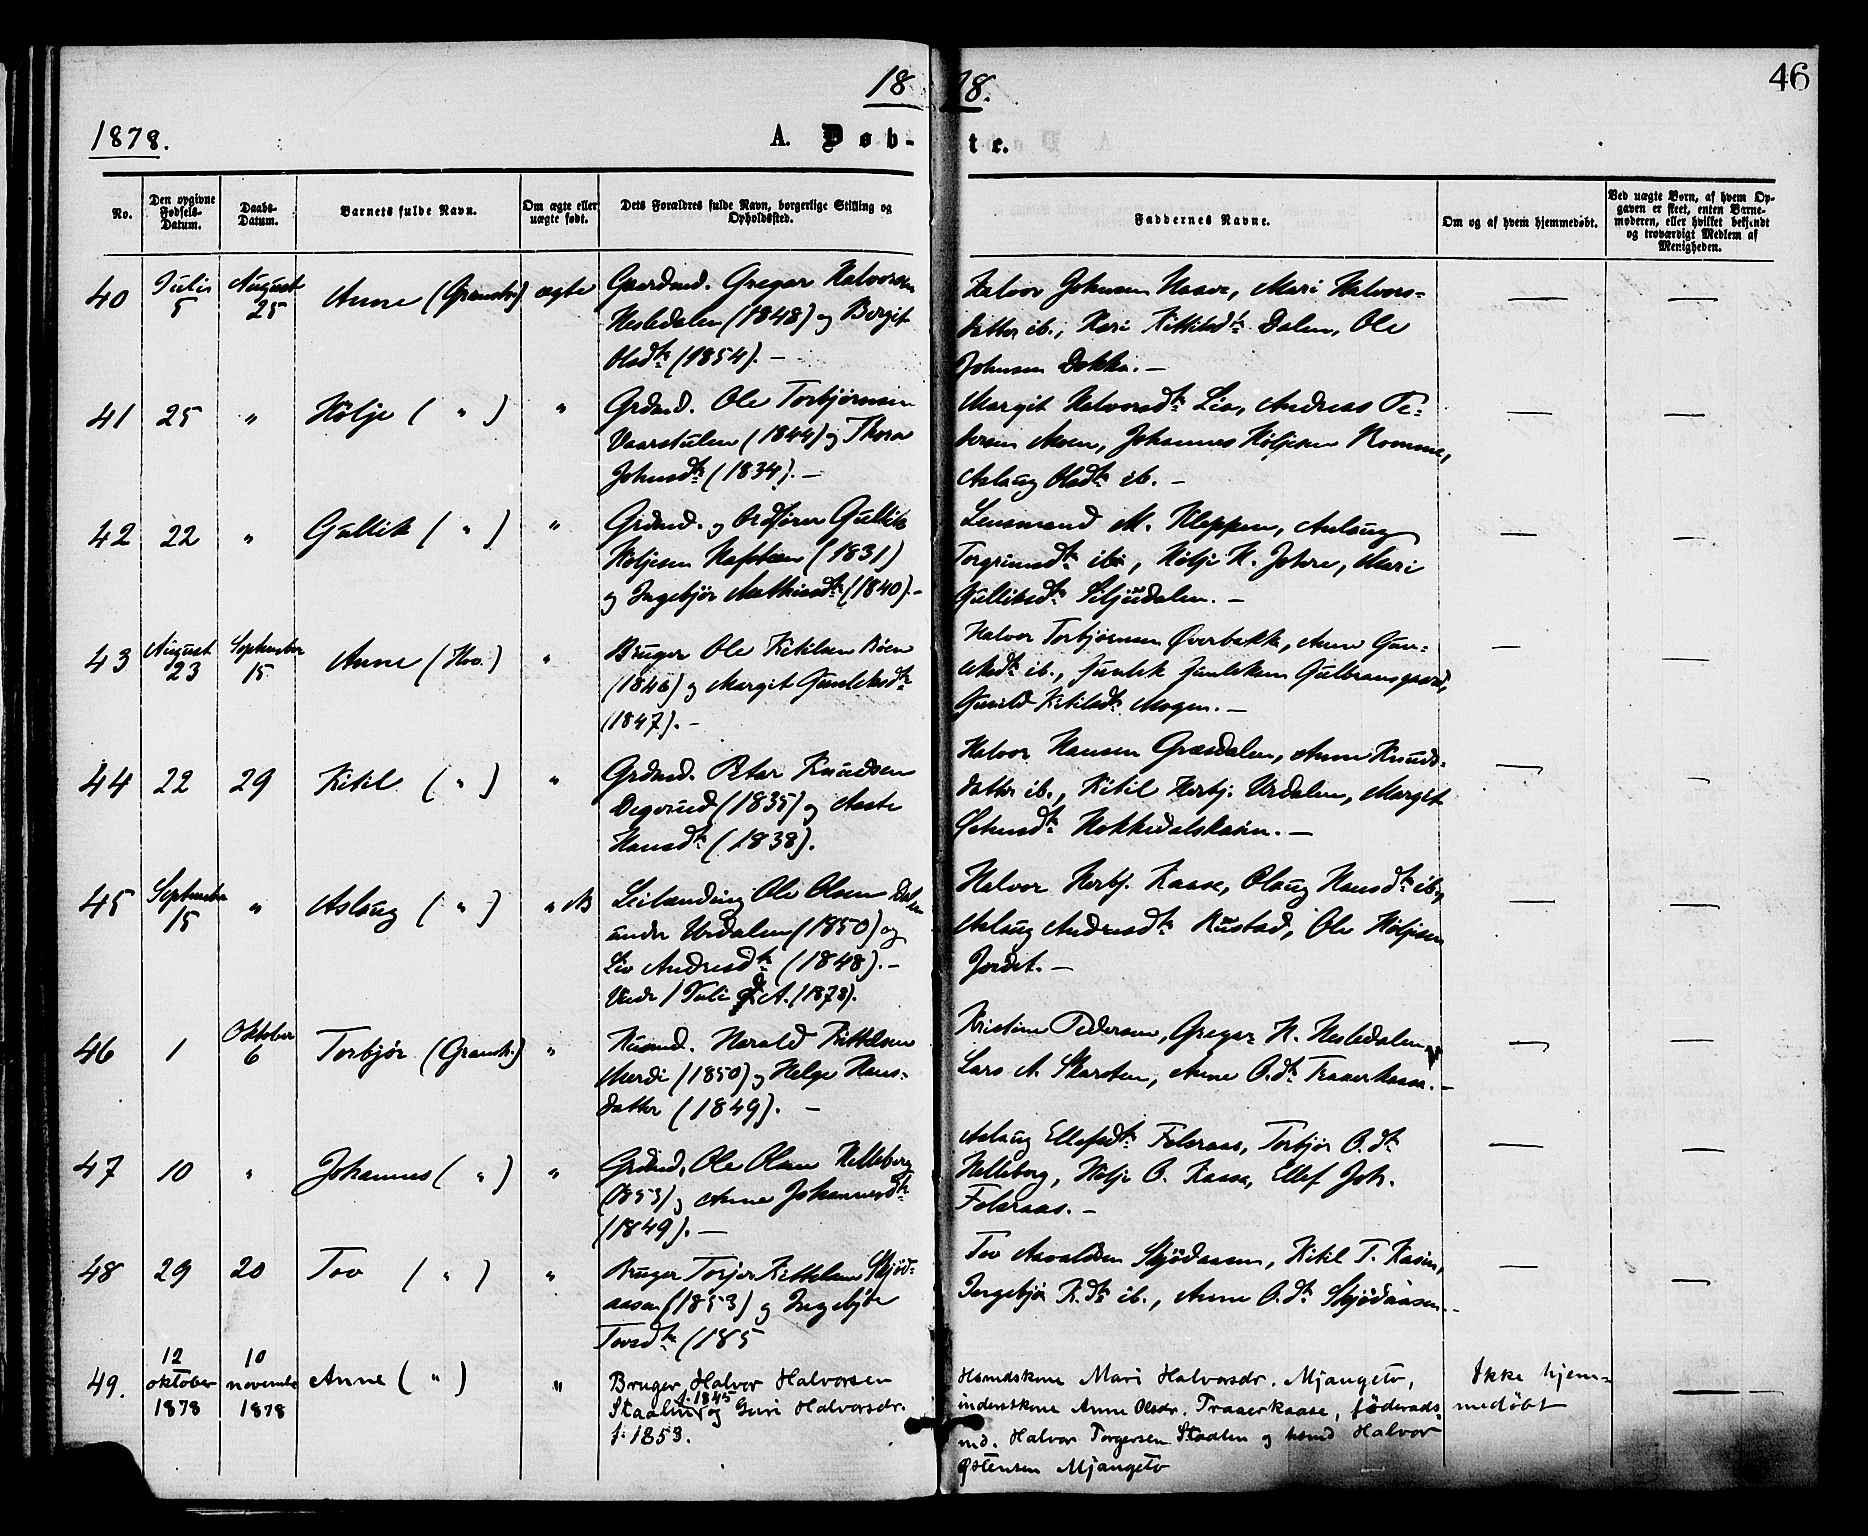 18 78.
46
1878.
A. Døb- te.
No.
Den opgivne Fødsels-Datum.
Daabs-Datum.
Barnets fulde Navn.
Om ægte eller uægte født.
Dets Forældres fulde Navn, borgerlige Stilling og Opholdssted.
Faddernes Navne.
Om og af hvem hjemmedøbt.
Ved uægte Børn, af hvem Opgaven er skeet, enten Barnemoderen, eller hvilket bekjendt og troværdigt Medlem af Menigheden.
40 Juli 5 August 25 Anne (Gransh.) ægte Gaardmd. Gregar Halvorsen
Nesledalen (1848) og Bergit
Olsdtr (1854). —
Halvor Johnsen Haave, Mari Halvors-
datter ib., Kari Kittilsdtr Dalen, Ole
Johnsen Dokka. —
41 25 " Hølje ( " ) " Grdmd. Ole Torbjørnsen
Vaarstulen (1844) og Thora
Johnsdtr (1834). —
Margit Halvorsdtr Lia, Andreas Pe-
dersen Moen, Johannes Høljesen Romme,
Aslaug Olsdtr ib. —
42 22 " Gullik ( " ) " Grdmd. og Ordfører Gullik
Høljesen (1831)
og Ingebjør Mathisdtr (1840). —
Lensmand M. Kleppen, Aslaug
Torgrimsdtr ib., Hølje H. Johre, Mari
Gulliksdtr Siljudalen. —
43 August 23 September 15 Anne (Hov.) " Bruger Ole Kitilsen Bøen
(1846) og Margit Gunleksdtr
(1847). —
Halvor Torbjørnsen Øverbakk, Anne Gun-
leksdtr ib., Gunlek Gunleksen Gulbransgaard,
Gunild Kitilsdtr Mogen. —
44 22 29 Kitil ( " ) " Grdmd. Petar Knudsen
Degerud (1835) og Aaste
Hansdtr (1838).
Halvor Hansen Græsdalen, Anne Knuds-
datter ib., Kitil Herbj. Urdalen, Margit
Hokkedalskaasin. —
45 September 15 " Aslaug ( " ) " Leilænding Ole Olsen Dalen
under Urdalen (1850) og
Liv Andresdtr (1848). —
Viede 1 Juli d. A. (1878).
Halvor Herbj. Kaasa, Olaug Hansdtr ib.,
Aslaug Andresdtr Rustad, Ole Høljesen
Jordet. —
46 1 Oktober 6 Torbjør (Gransh.) " Husmd. Harald Kittelsen
Merdi (1850) og Helge Hans-
datter (1849). —
Kristine Pedersen, Gregar H. Nesledalen,
Lars A. Skarsten, Anne O.dtr Traaerkaasa. —
47 10 " Johannes ( " ) " Grdmd. Ole Olsen Helleberg
(1853) og Anne Johannesdtr
(1849). —
Aslaug Ellefsdtr Folsraas, Torbjør O.dtr
Helleberg, Hølje O. Kaasa, Ellef Joh.
Folsraas. —
48 29 20 Tov ( " ) " Bruger Torjer Kittelsen Skjød-
aasen (1853) og Ingebjør
Tovsdtr (185
Tov Aavaldsen Skjødaasen, Kitil T. Kasin,
Ingebjør K.dtr ib., Anne O.dtr Skjødaasen. —
49. 12 oktober 1878 10 november 1878 Anne ( " ) " Bruger Halvor Halvorsen
Staalen f. 1845 og Guri Halvorsdr.
f. 1853.
Hsmdskone Mari Halvorsdr. Mjangetv,
inderstkone Anne Olsdr. Traaerkaase, föderåds-
md. Halvor Torgersen Staalen og hsmd Halvor
Östensen Mjangetv
Ikke hjem-
medöbt